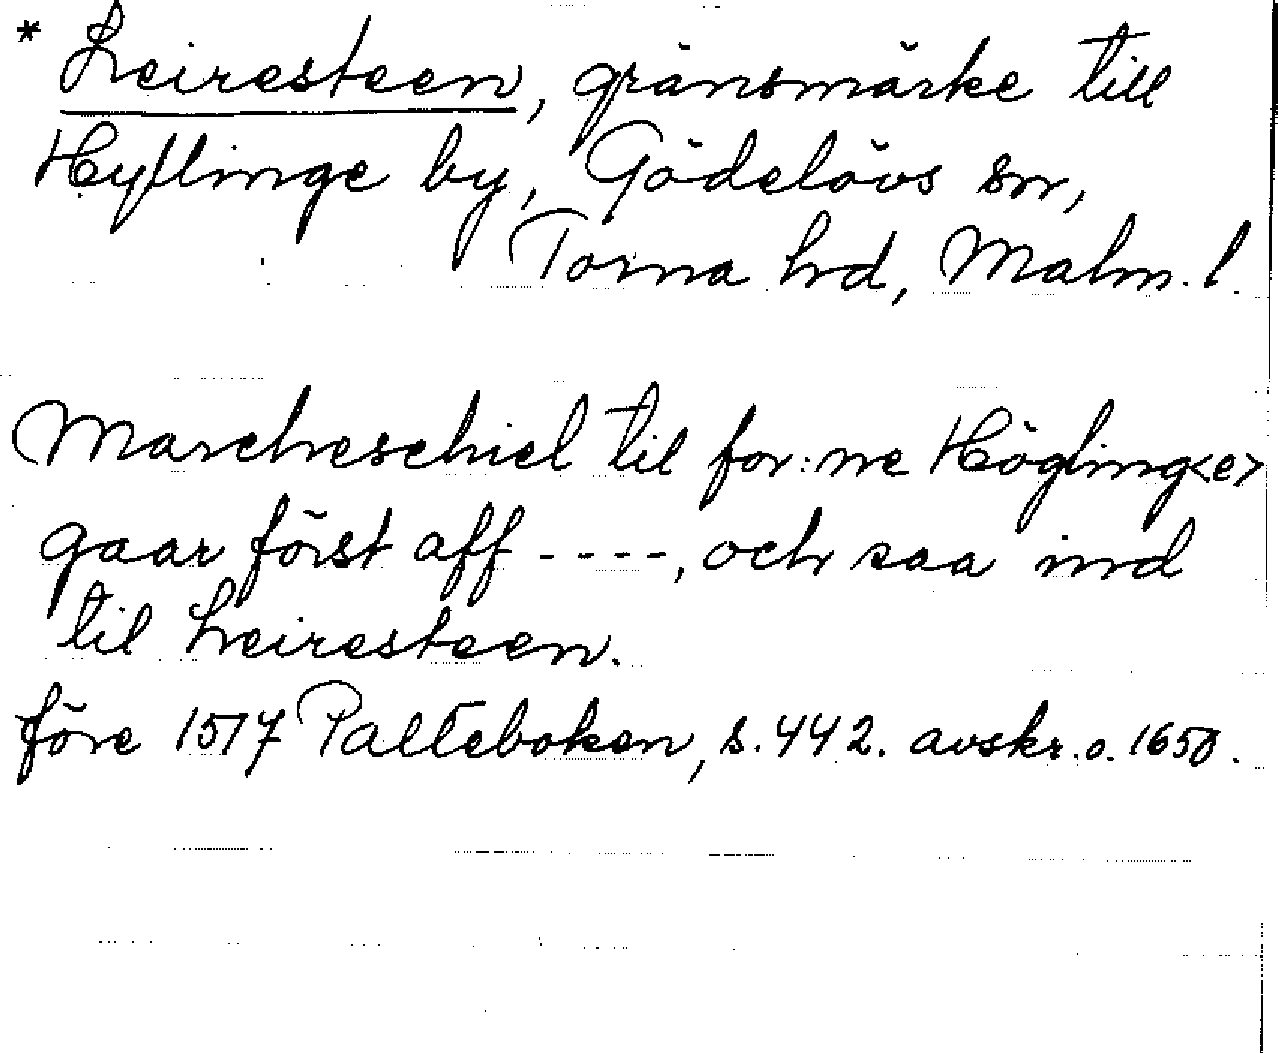 * Leiresteen, gränsmärke till
Hyllinge by, Gödelövs sn,
Torna hd, Malm. l.
Marcheschiel til for:ne Högling<e>
gaar först aff ----, och saa ind
til Leiresteen.
före 1517 Palteboken, s. 442. avskr. o. 1650.